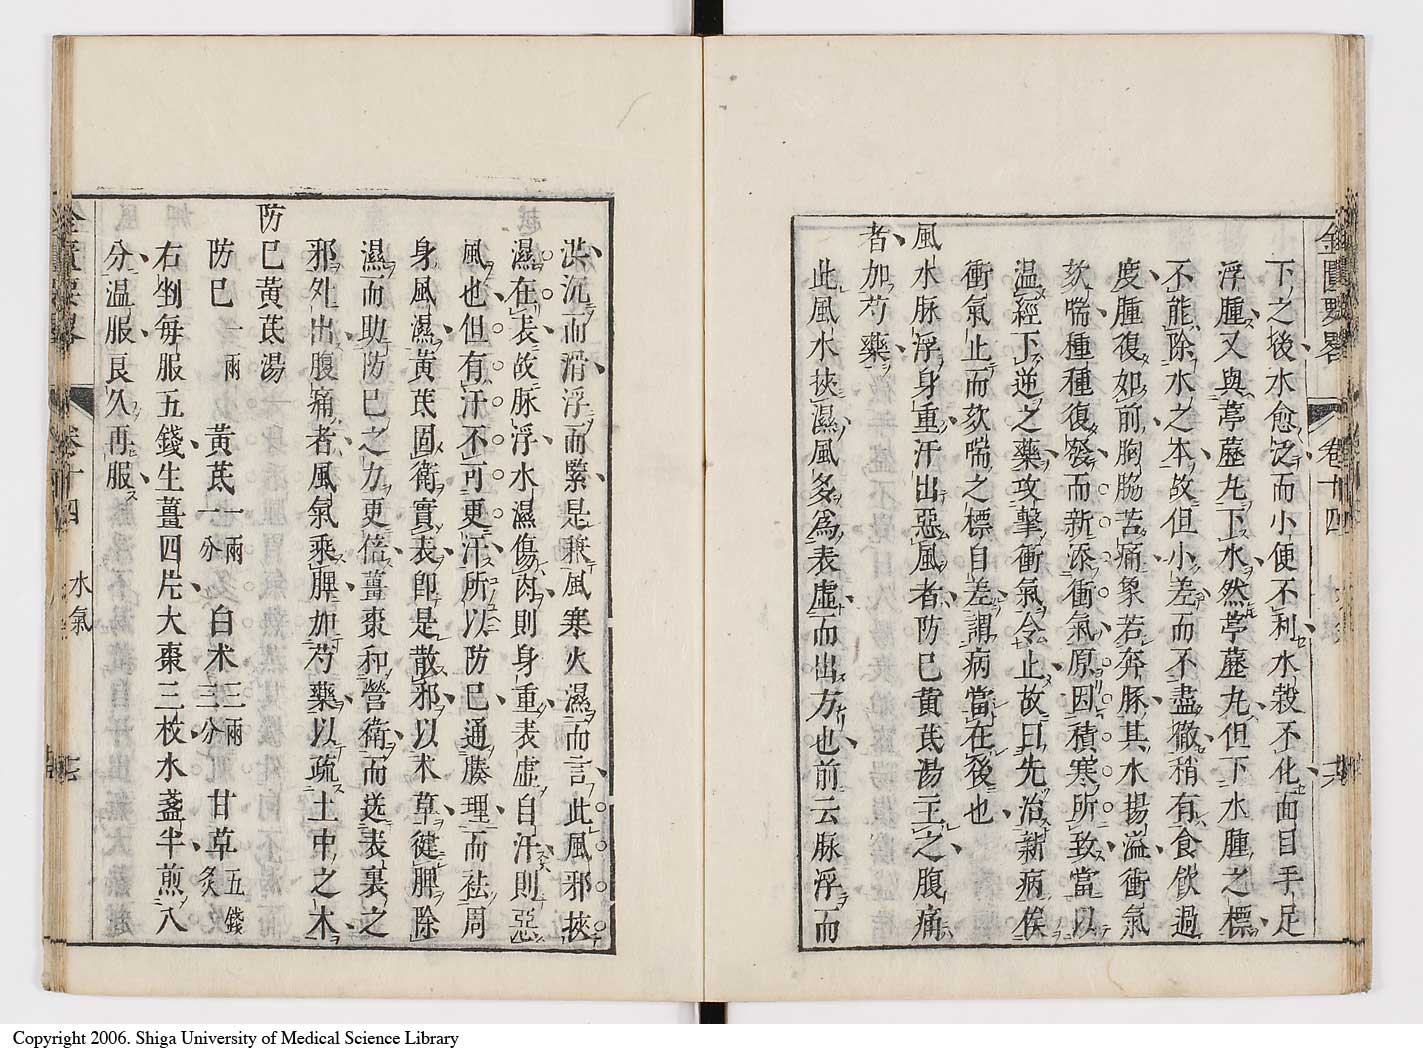 金匱要畧 卷十四
下之後水愈泛而小便不利水穀不化面目手足
浮腫又與葶藶丸下水然葶藶丸但下水腫之標
不能除水之本故但小差而不盡徹稍有食飲過
度腫復如前胸脇苦痛象若奔豚其水揚溢衝氣
欬喘種種復發而新添衝氣原因積寒所致當以
温經下逆之藥攻擊衝氣令止故曰先治新病俟
衝氣止而欬喘之標自差謂病當在後也
風水脉浮身重汗出惡風者防巳黄茋湯主之腹痛
者加芍藥
此風水挾濕風多為表虛而出方也前云脉浮而
洪沉而滑浮而緊是兼風寒火濕而言此風邪挾
濕在表故脉浮水濕傷肉則身重表虛自汗則惡
風也但有汗不可更汗所以防巳通腠理而祛周
身風濕黄茋固衛實表卽是散邪以术草健脾除
濕而助防巳之力更倍薑棗和營衛而送表裏之
邪外出腹痛者風氣乘脾加芍藥以疏土中之木
防巳黄茋湯
防巳一兩 黄茋一兩一分 白术三兩三分 甘草五錢炙
右剉每服五錢生薑四片大棗二枚水盞半煎八
分温服良久再服
金匱要畧 卷十四 水氣
Copyright 2006. Shiga University of Medical Science Library